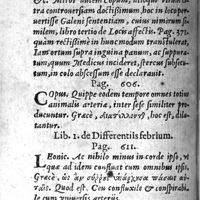 tra controuersiam doctissimi, hoc in locoper-
uertisse Galeni sententiam, cuius nimirum si-
milem, libro tertio de Locis affectis. Pag. 371.
quàm rectissimè in hunc modum transtulerat,
tamortum supra inguina pannum, ac suppura-
tum, quum Medicus incideret, stercus subiectum,
in colo abscessum esse declarauit.
Pag. 606.
Copus. Quippe eodem tempore omnes totius
animalis arteriæ, inter sese similiter pro-
ducuntur. Græcè, hoc est, dila-
tantur.
Lib. 1. de Differentiis febrium.
Pag. 611.
Leonic. Ac nihilo minus in corde ipso,
qua ad idem confluunt cum omnibus, ipsi.
Græcè, ὡς ἂν
Quod est. Ceu confluxile & conspirabi-
le cum vniuersis arteriis